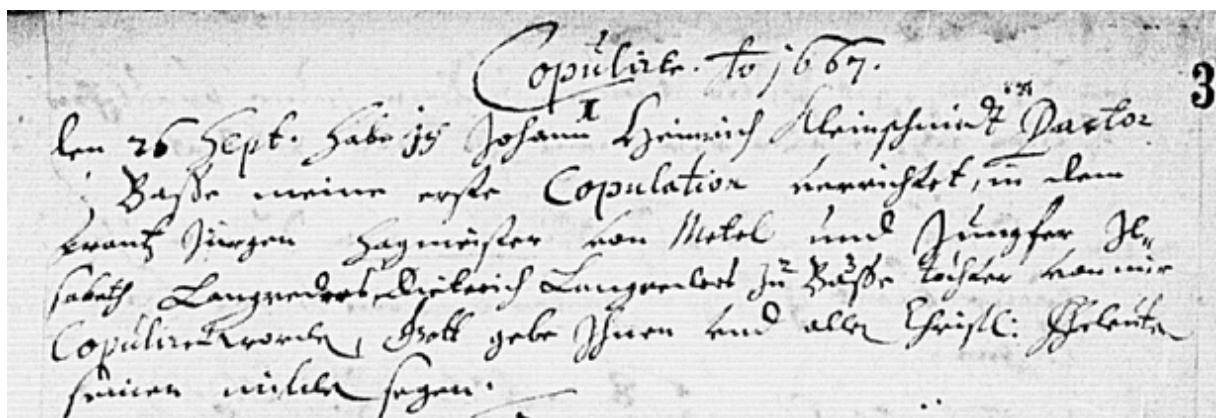 Copulirte. Ao 1667.
3
den 26 Sept. habe ich Johann Heinrich Kleinschmidt Pastor
Basse meine erste Copulation verrichtet, in dem
Frantz Jürgen Hagmeister von Metel und Jungfer Il„
sabeth Langreders, Dieterich Langreders zu Basse tochter von mir
Copuliret worden, Gott gebe Ihnen und allen Christl: Eheleuten
seinen milden segen.